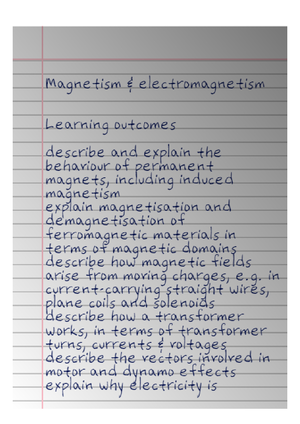 Magnetism & electromagnetism
Learning outcomes
describe and explain the
behaviour of permanent
magnets, including induced
magnetism
explain magnetisation and
demagnetisation of
ferromagnetic materials in
terms of magnetic domains
describe how magnetic fields
arise from moving charges, e.g. in
current-carrying straight wires,
plane coils and solenoids
describe how a transformer
works, in terms of transformer
turns, currents & voltages
describe the vectors involved in
motor and dynamo effects
explain why electricity is